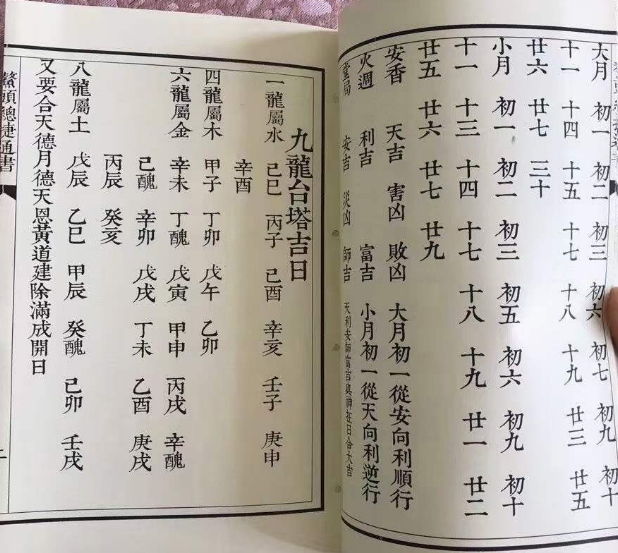 大月 初一 初二 初三 初六 初七 初九 初十
十一 十四 十五 十七 十八 十九 廿五
廿六 三十
小月 初一 初二 初三 初五 初六 初九 初十
十一 十三 十四 十七 十八 十九 廿一 廿二
廿五 廿六 廿七 廿九
安香 天吉 害凶 敗凶 大月初一從安向利順行
火週 利吉 富吉 小月初一從天向利逆行
堂局 安吉 災凶 師吉 天利安師富吉與神在日合大吉
九龍台塔吉日
一龍屬水 己巳 丙子 己酉 辛亥 壬子 庚申
辛酉
四龍屬木 甲子 丁卯 戊午 乙卯
六龍屬金 辛未 丁醜 戊寅 甲申 丙戌 辛醜
己醜 辛卯 戊戌 丁未 乙酉 庚戌
丙辰 癸亥
八龍屬土 戊辰 乙巳 甲辰 癸醜 己卯 壬戌
又要合天德月德天恩黃道建除滿成開日
鰲頭總捷通書